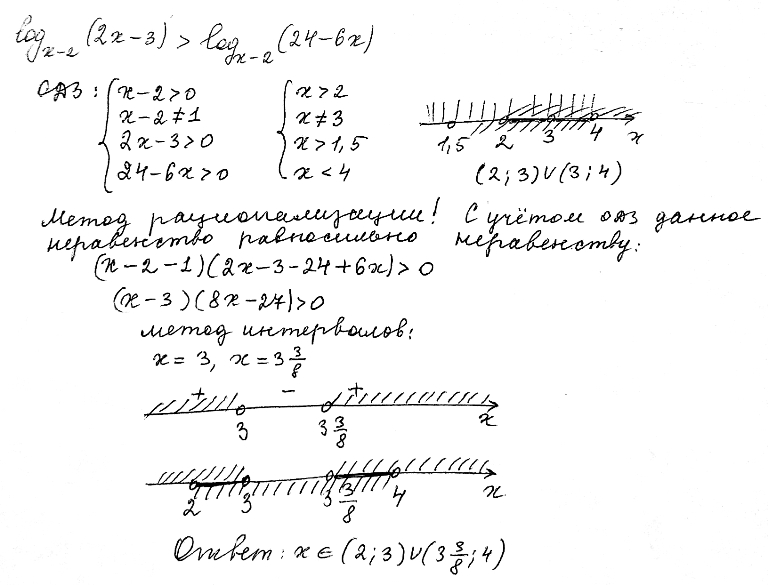 log_{x-2}(2x-3) > log_{x-2}(24-6x)
ОДЗ: { x-2>0 { x>2
x-2≠1 x≠3
2x-3>0 x>1,5
24-6x>0 x<4
1,5 2 3 4 x
(2;3)∪(3;4)
Метод рационализации! С учётом ОДЗ данное
неравенство равносильно неравенству:
(x-2-1)(2x-3-24+6x)>0
(x-3)(8x-27)>0
метод интервалов:
x=3, x=3 3/8
+ − +
3 3 3/8 x
2 3 3 3/8 4 x
Ответ: x∈(2;3)∪(3 3/8;4)